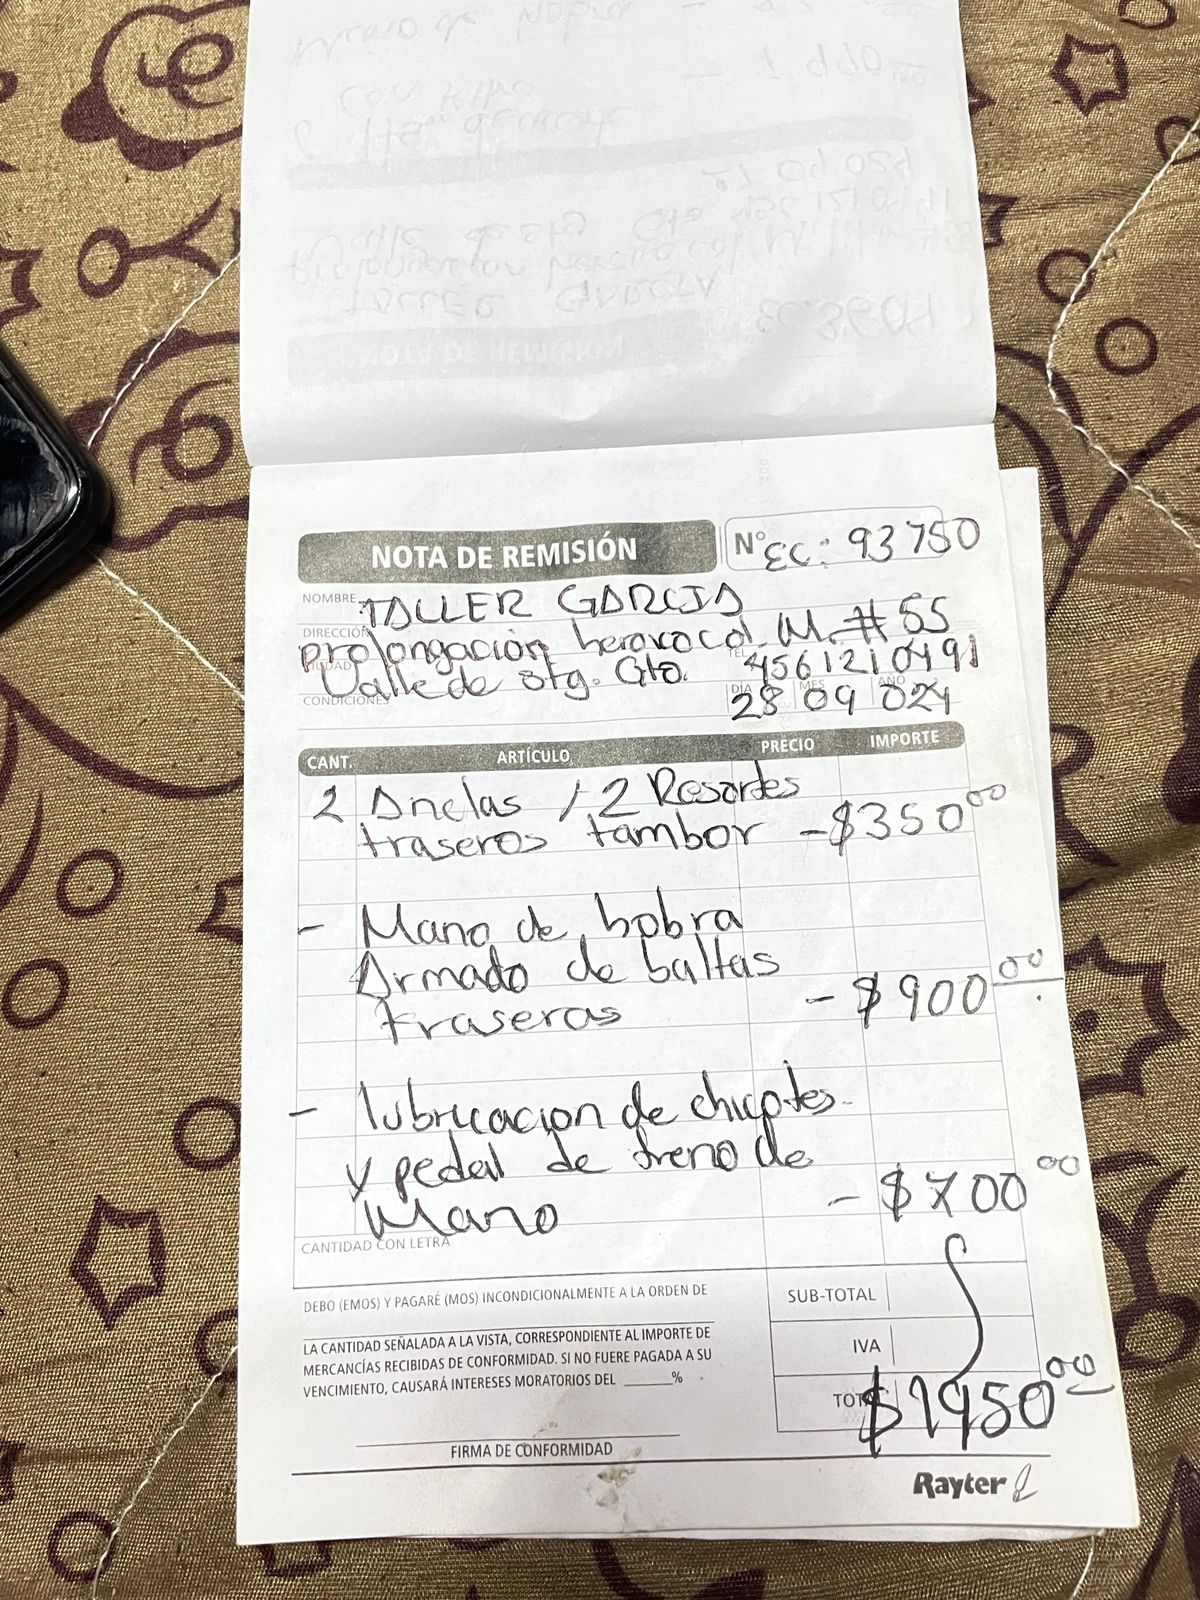 NOTA DE REMISIÓN
N° EC: 93750
NOMBRE TALLER GARCIA
DIRECCIÓN prolongación heroico col. M. # 55
CIUDAD Valle de Stg. Gto. TEL 4561210491
CONDICIONES
DÍA MES AÑO
28 09 024
CANT. ARTÍCULO PRECIO IMPORTE
2 Anelas / 2 Resortes
traseros tambor - $350 00
- Mano de hobra
Armado de baltas
traseras - $900 00
- lubricacion de chicotes
y pedal de freno de
Mano - $700 00
CANTIDAD CON LETRA
DEBO (EMOS) Y PAGARÉ (MOS) INCONDICIONALMENTE A LA ORDEN DE
LA CANTIDAD SEÑALADA A LA VISTA, CORRESPONDIENTE AL IMPORTE DE
MERCANCÍAS RECIBIDAS DE CONFORMIDAD. SI NO FUERE PAGADA A SU
VENCIMIENTO, CAUSARÁ INTERESES MORATORIOS DEL ______%
SUB-TOTAL
IVA
TOTAL $1950 00
FIRMA DE CONFORMIDAD
Rayter